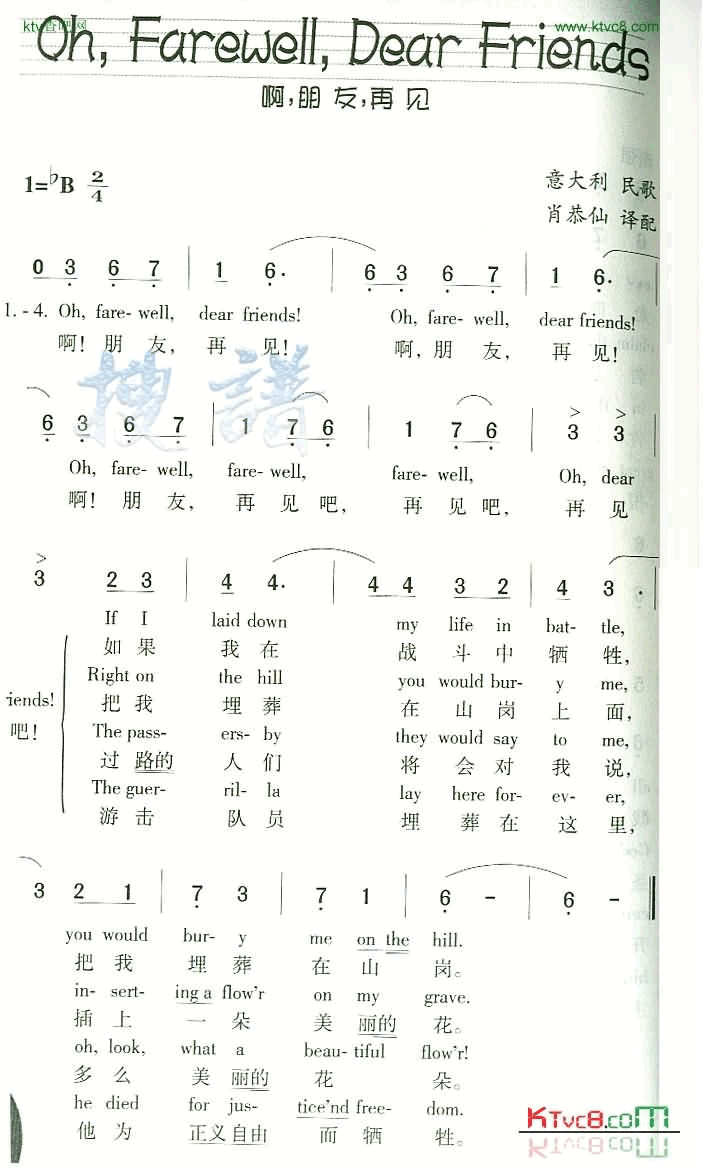 ktv吧网
www.ktvc8.com
Oh, Farewell, Dear Friends
啊,朋友,再见
1=♭B 2/4
意大利 民歌
肖恭仙 译配
0 3 6 7 | 1 6· | 6 3 6 7 | 1 6·
1.-4. Oh, fare-well, dear friends! Oh, fare-well, dear friends!
啊! 朋友, 再见! 啊, 朋友, 再见!
搜譜
6 3 6 7 | 1 7 6 | 1 7 6 | 3 3
Oh, fare-well, fare-well, fare-well, Oh, dear
啊! 朋友, 再见吧, 再见吧, 再见
3 2 3 | 4 4· | 4 4 3 2 | 4 3·
If I laid down my life in bat-tle,
如果 我在 战斗中牺牲,
Right on the hill you would bur-y me,
iends!
把我 埋葬 在山岗上面,
吧!
The pass-ers-by they would say to me,
过路的 人们 将会对我说,
The guer-ril-la lay here for-ev-er,
游击 队员 埋葬在这里,
3 2 1 | 7 3 | 7 1 | 6 - | 6 -
you would bur-y me on the hill.
把我 埋葬 在山岗。
in-sert-ing a flow'r on my grave.
插上 一朵 美丽的花。
oh, look, what a beau-tiful flow'r!
多么 美丽的 花朵。
he died for jus-tice'nd free-dom.
他为 正义自由 而牺牲。
KTVC8.com